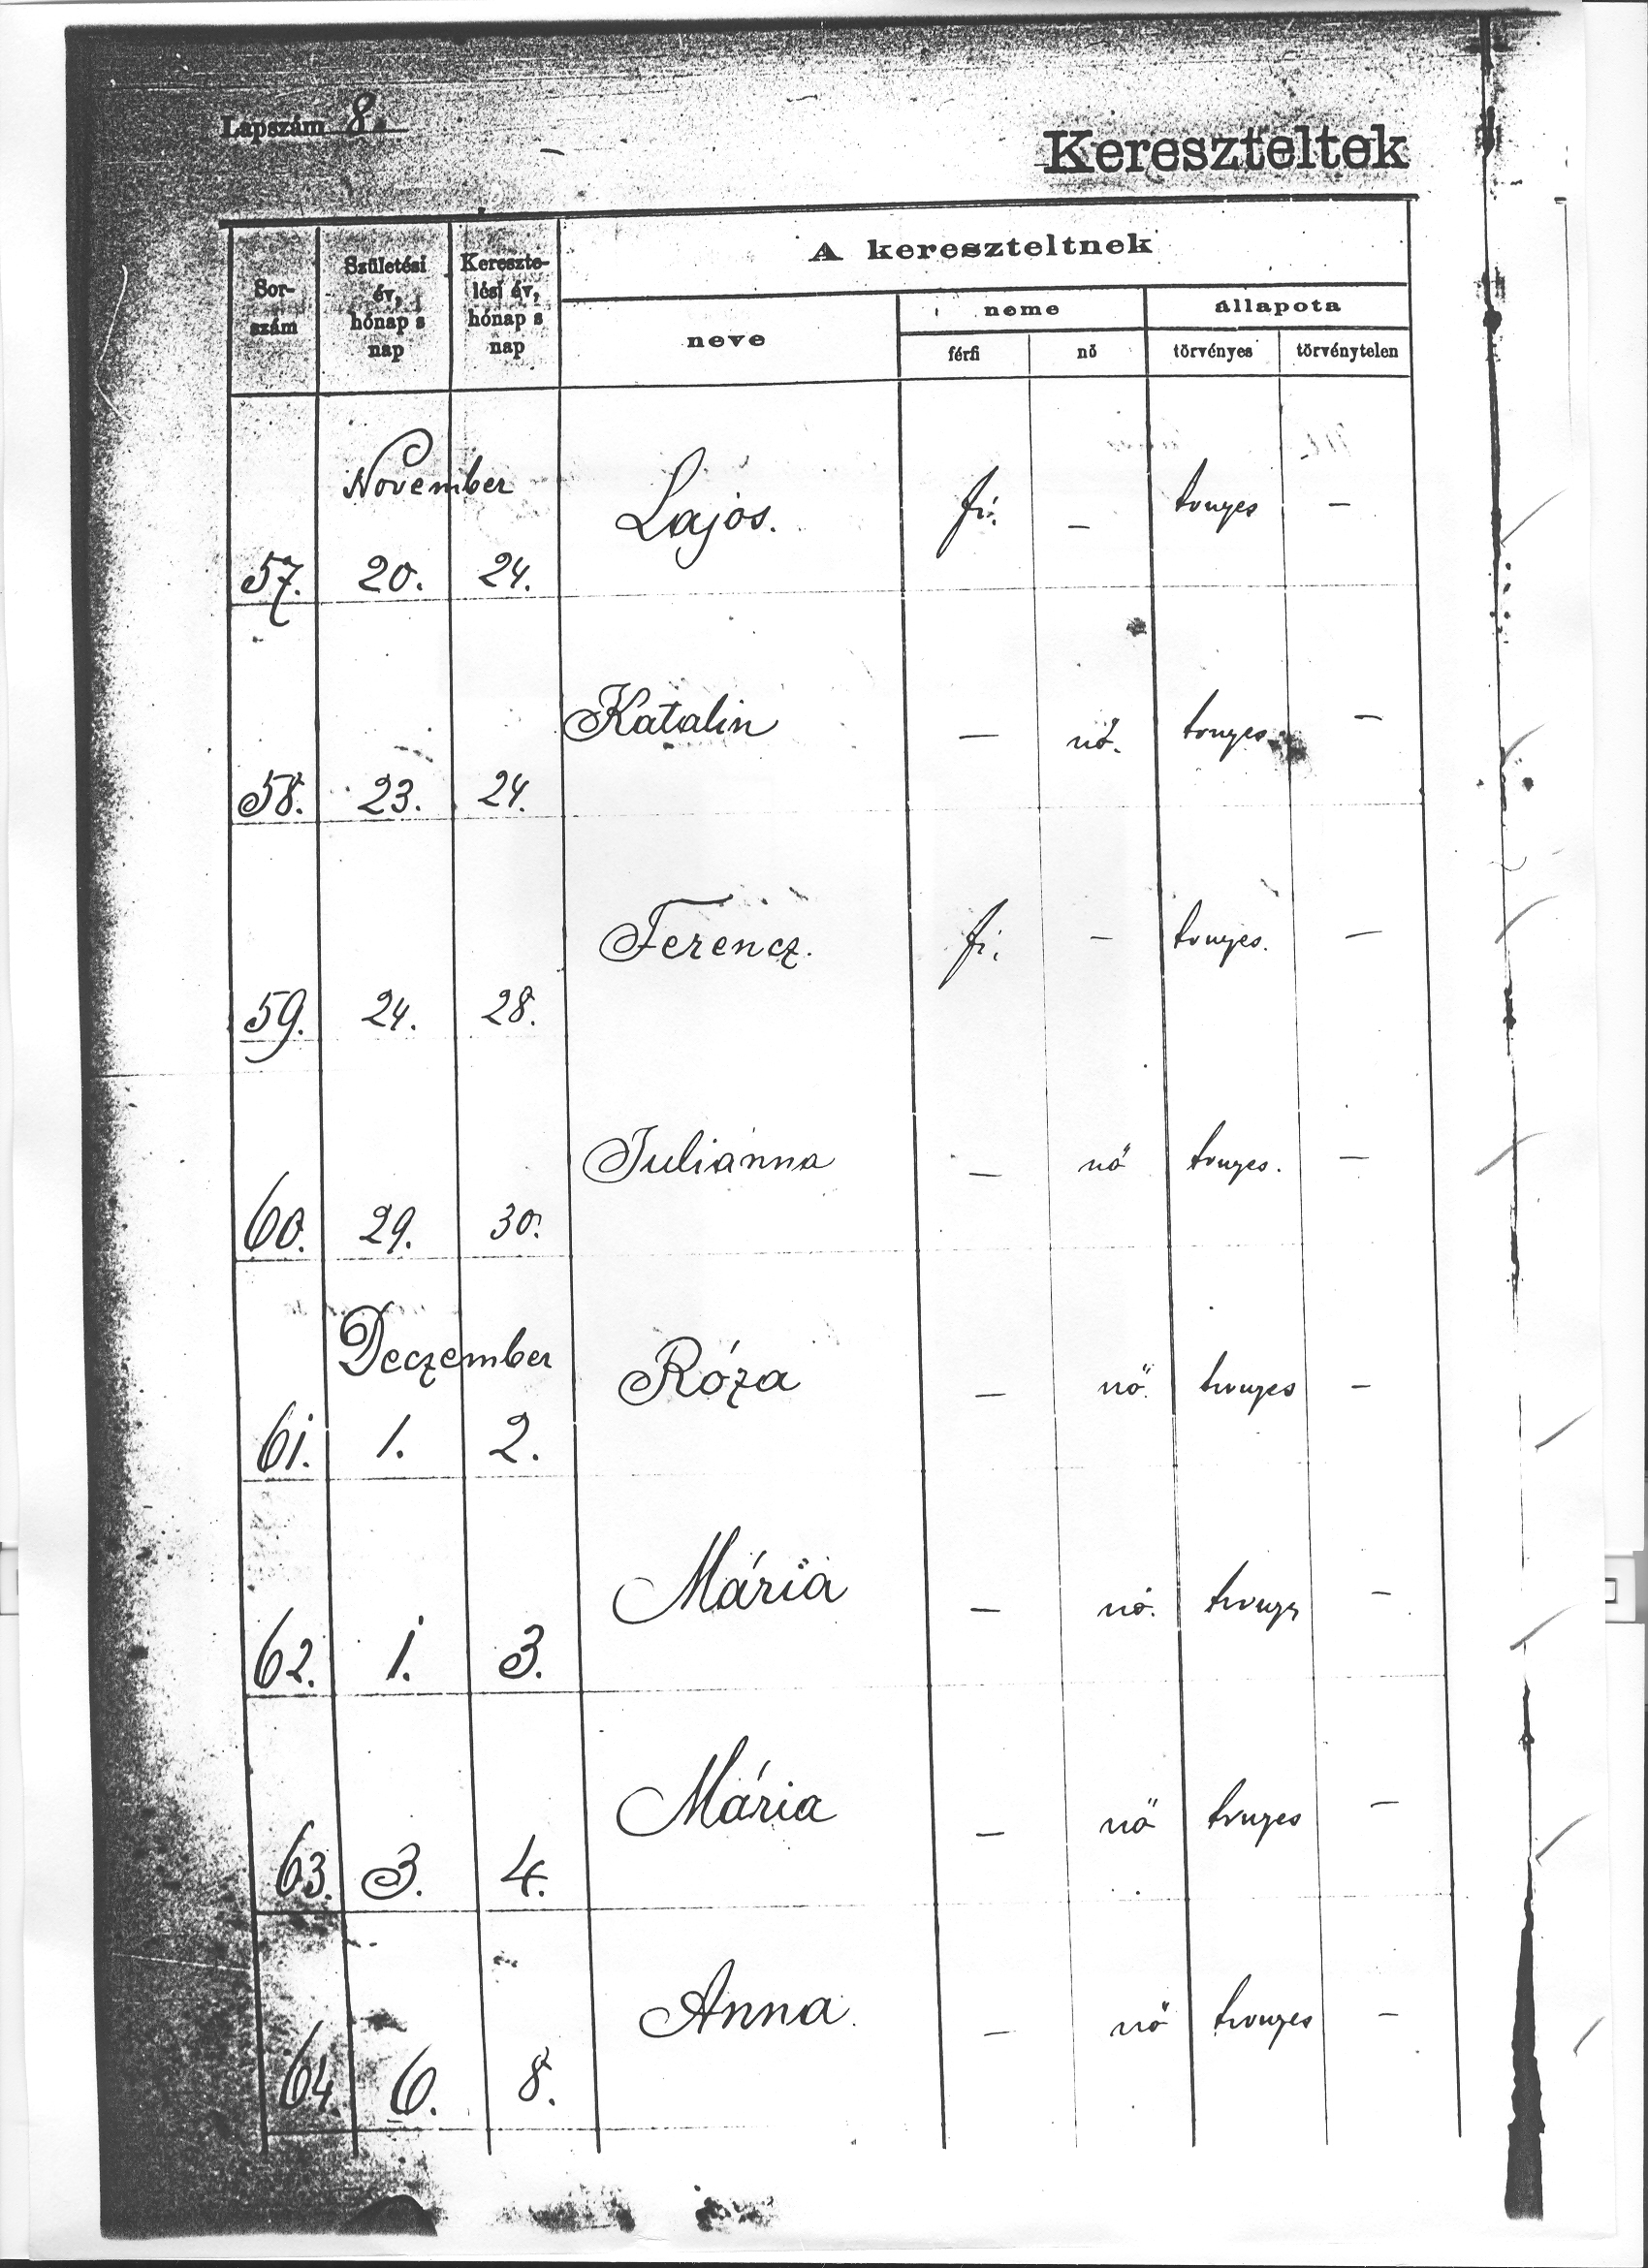 Lapszám 8.
Kereszteltek
Sor-
szám
Születési
év,
hónap s
nap
Kereszte-
lési év,
hónap s
nap
A kereszteltnek
neve
neme
állapota
férfi nő törvényes törvénytelen
November
57. 20. 24. Lajos. fi. – tvnyes –
58. 23. 24. Katalin – nő. tvnyes –
59. 24. 28. Ferencz. fi. – tvnyes. –
60. 29. 30. Juliánna – nő tvnyes. –
Deczember
61. 1. 2. Róza – nő. tvnyes –
62. 1. 3. Mária – nő. tvnyes –
63. 3. 4. Mária – nő tvnyes –
64 6. 8. Anna. – nő tvnyes –